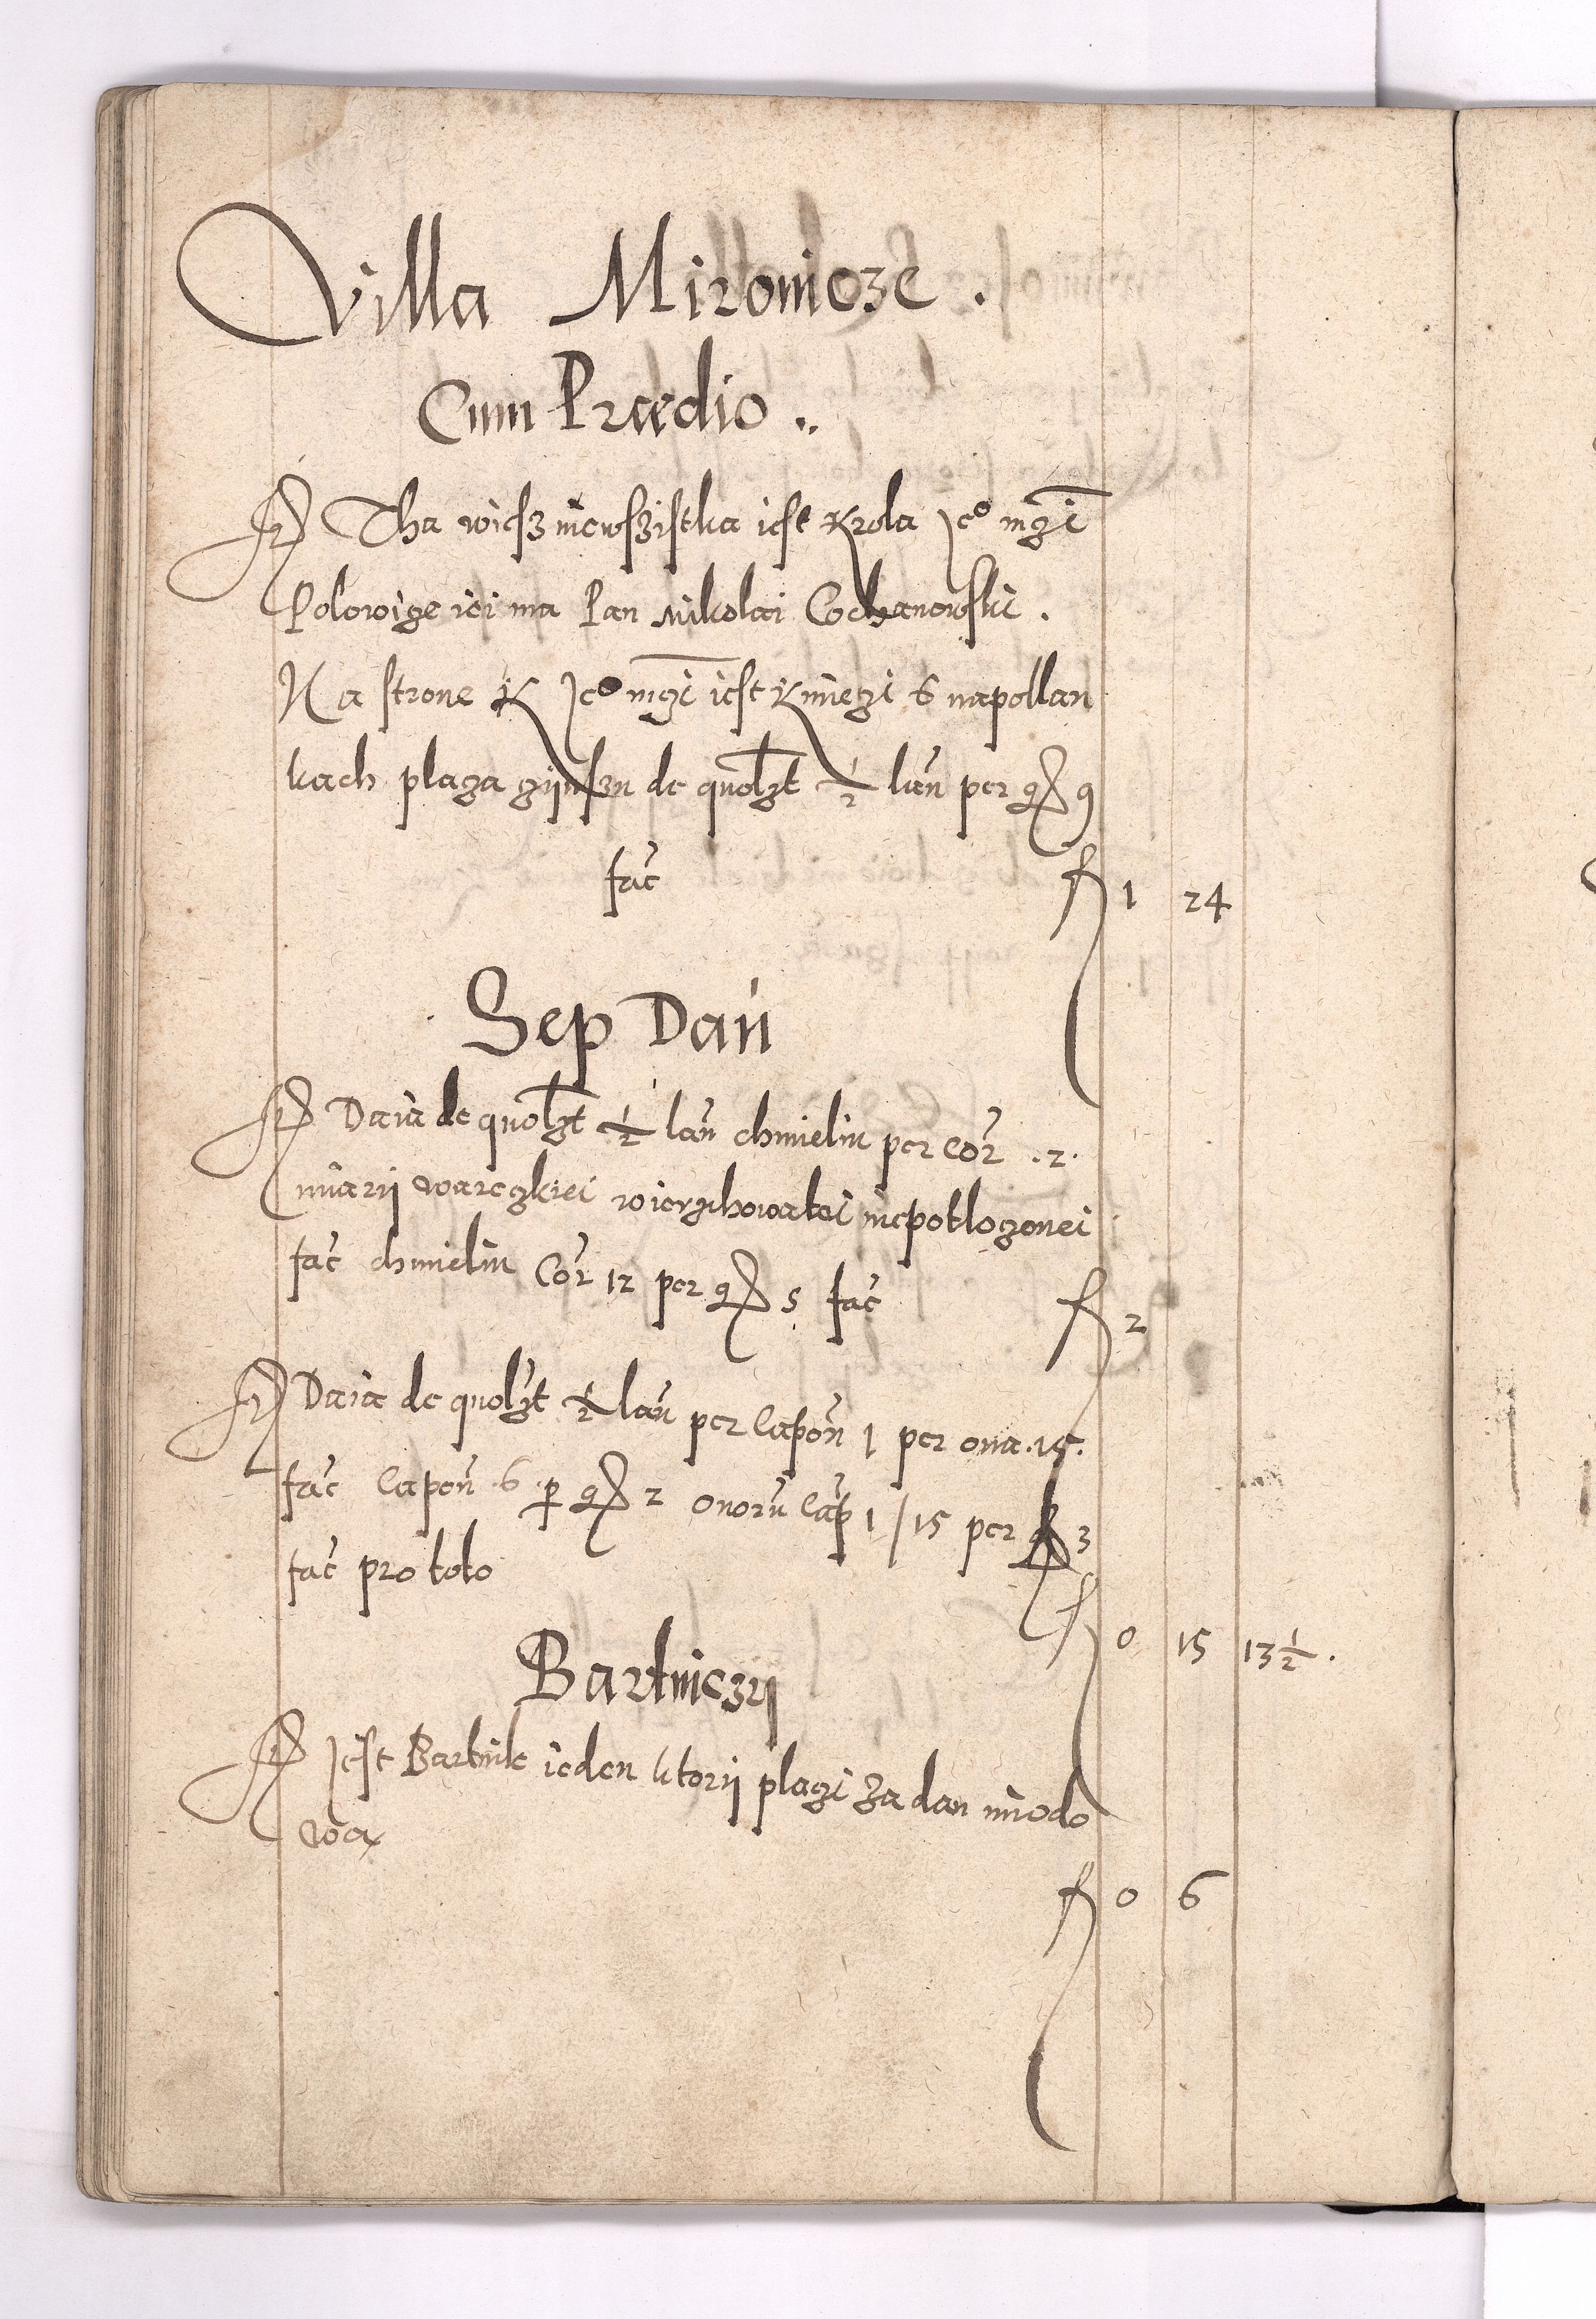 Villa Mironicze .
Cum Prædio ..
Tha wiesz niewszistka iest Krola Je° mczi
Polowicze iei ma Pan Mikolai Cochanowski .
Na strone K Je° mczi iest Kmiezi 6 na pollan
kach plaza czijnszu de quolzt ½ lan per g 9
fac f 1 24
Sep Dań
Daia de quolzt ½ lan chmieliu per cor .2.
miarij wareczkiei wierzchowatei niepotlozonei
fac chmieliu Cor 12 per g 5 fac f 2
Daia de quolzt ½ lan per Capon 1 per oua .15.
fac Capon 6 p g 2 ouoru Cap 1/15 per g 3
fac pro toto f 0 15 13½ .
Bartniczij
Jest Bartnik ieden ktorij placzi za dan miodo
wa f 0 6